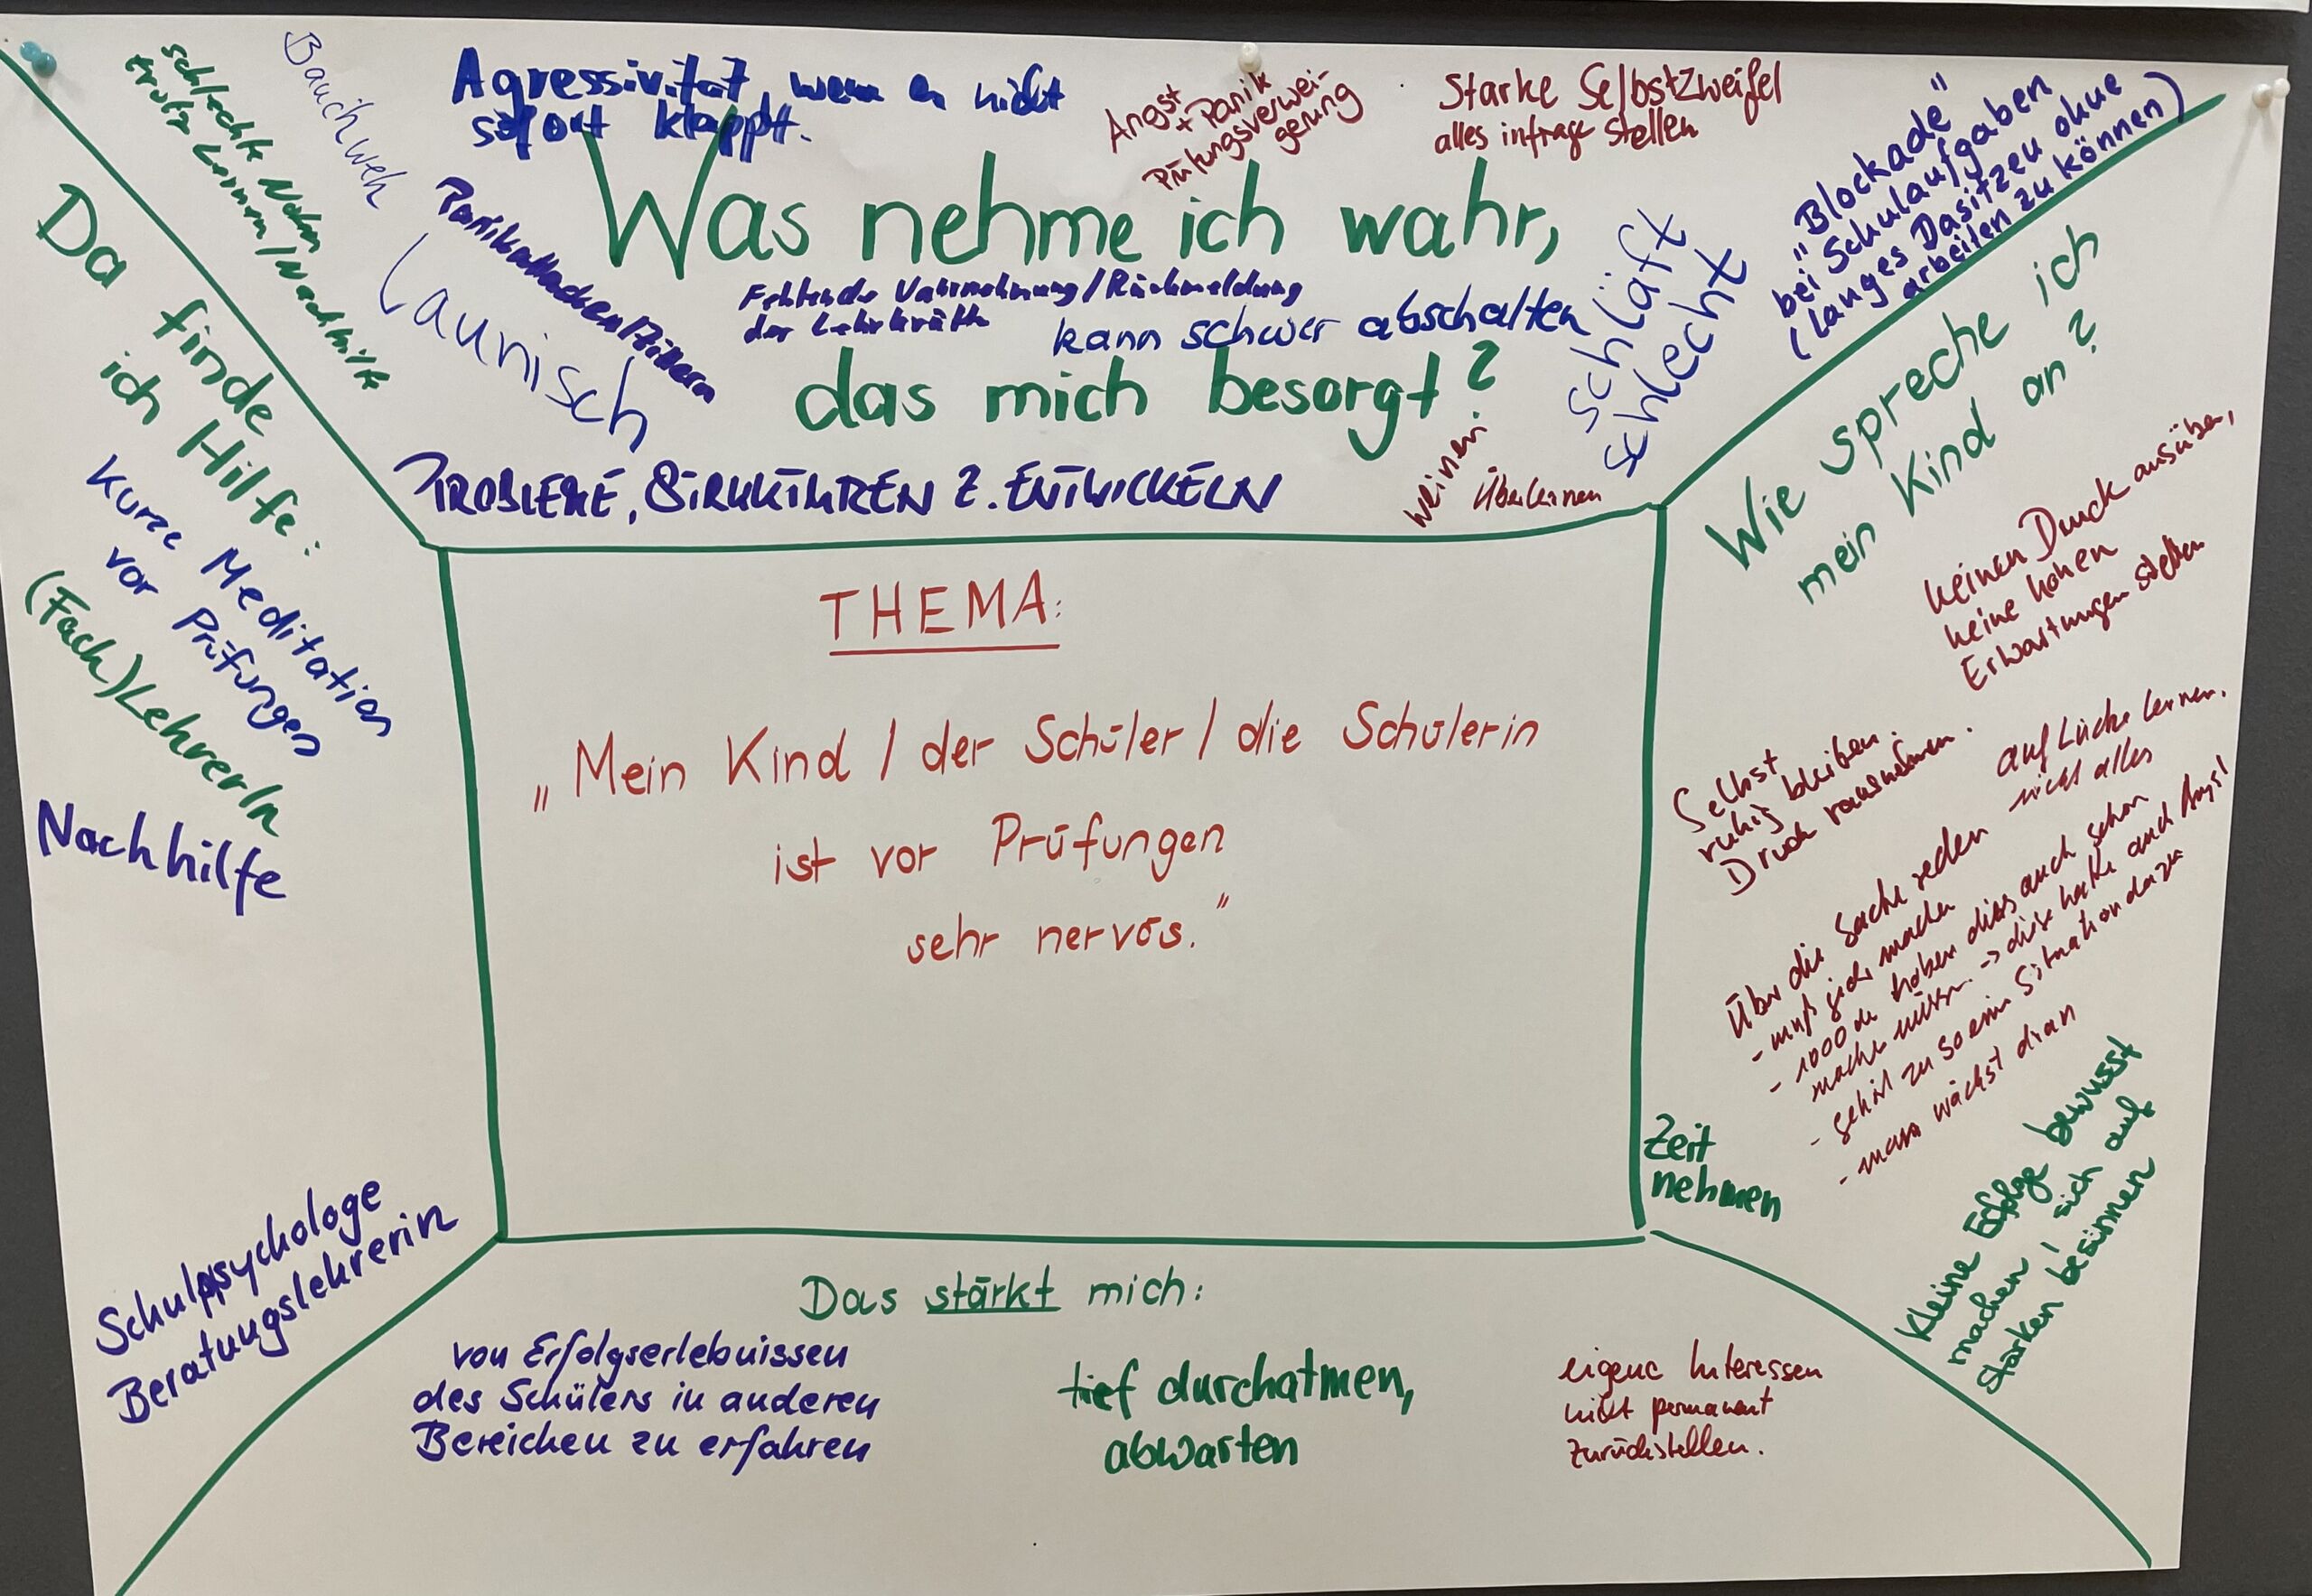 Agressivität, wenn es nicht
sofort klappt.
Angst
+ Panik
Prüfungsverwei-
gerung
Starke Selbstzweifel
alles infrage stellen
"Blockade"
bei Schulaufgaben
(langes Dasitzen ohne
arbeiten zu können)
Bauchweh
schlechte Noten
trotz Lernen/Nachhilfe
Panikattacken/Zittern
Launisch
Was nehme ich wahr,
Fehlende Wahrnehmung/Rückmeldung
der Lehrkräfte
kann schwer abschalten
schläft
schlecht
das mich besorgt?
weinen
Überlernen
PROBLEME, STRUKTUREN Z. ENTWICKELN
Da finde
ich Hilfe:
Kurze Meditation
vor Prüfungen
(Fach)LehrerIn
Nachhilfe
Schulpsychologe
Beratungslehrerin
THEMA:
"Mein Kind / der Schüler / die Schülerin
ist vor Prüfungen
sehr nervös."
Wie spreche ich
mein Kind an?
keinen Druck ausüben,
keine hohen
Erwartungen stellen
Selbst
ruhig bleiben.
Druck rausnehmen.
auf Lücke lernen.
nicht alles
Über die Sache reden
- muß jeder machen
- 1000de haben dies auch schon
machen müssen -> diese hatten auch Angst
- gehört zu so einer Situation dazu
- man wächst dran
Zeit
nehmen
Kleine Erfolge bewusst
machen / sich auf
Stärken besinnen
Das stärkt mich:
von Erfolgserlebnissen
des Schülers in anderen
Bereichen zu erfahren
tief durchatmen,
abwarten
eigene Interessen
nicht permanent
zurückstellen.